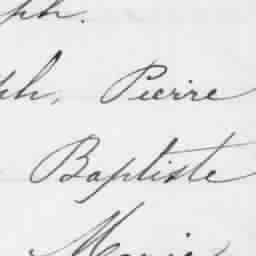 ph.
ph, Pierre
Baptiste
Marie